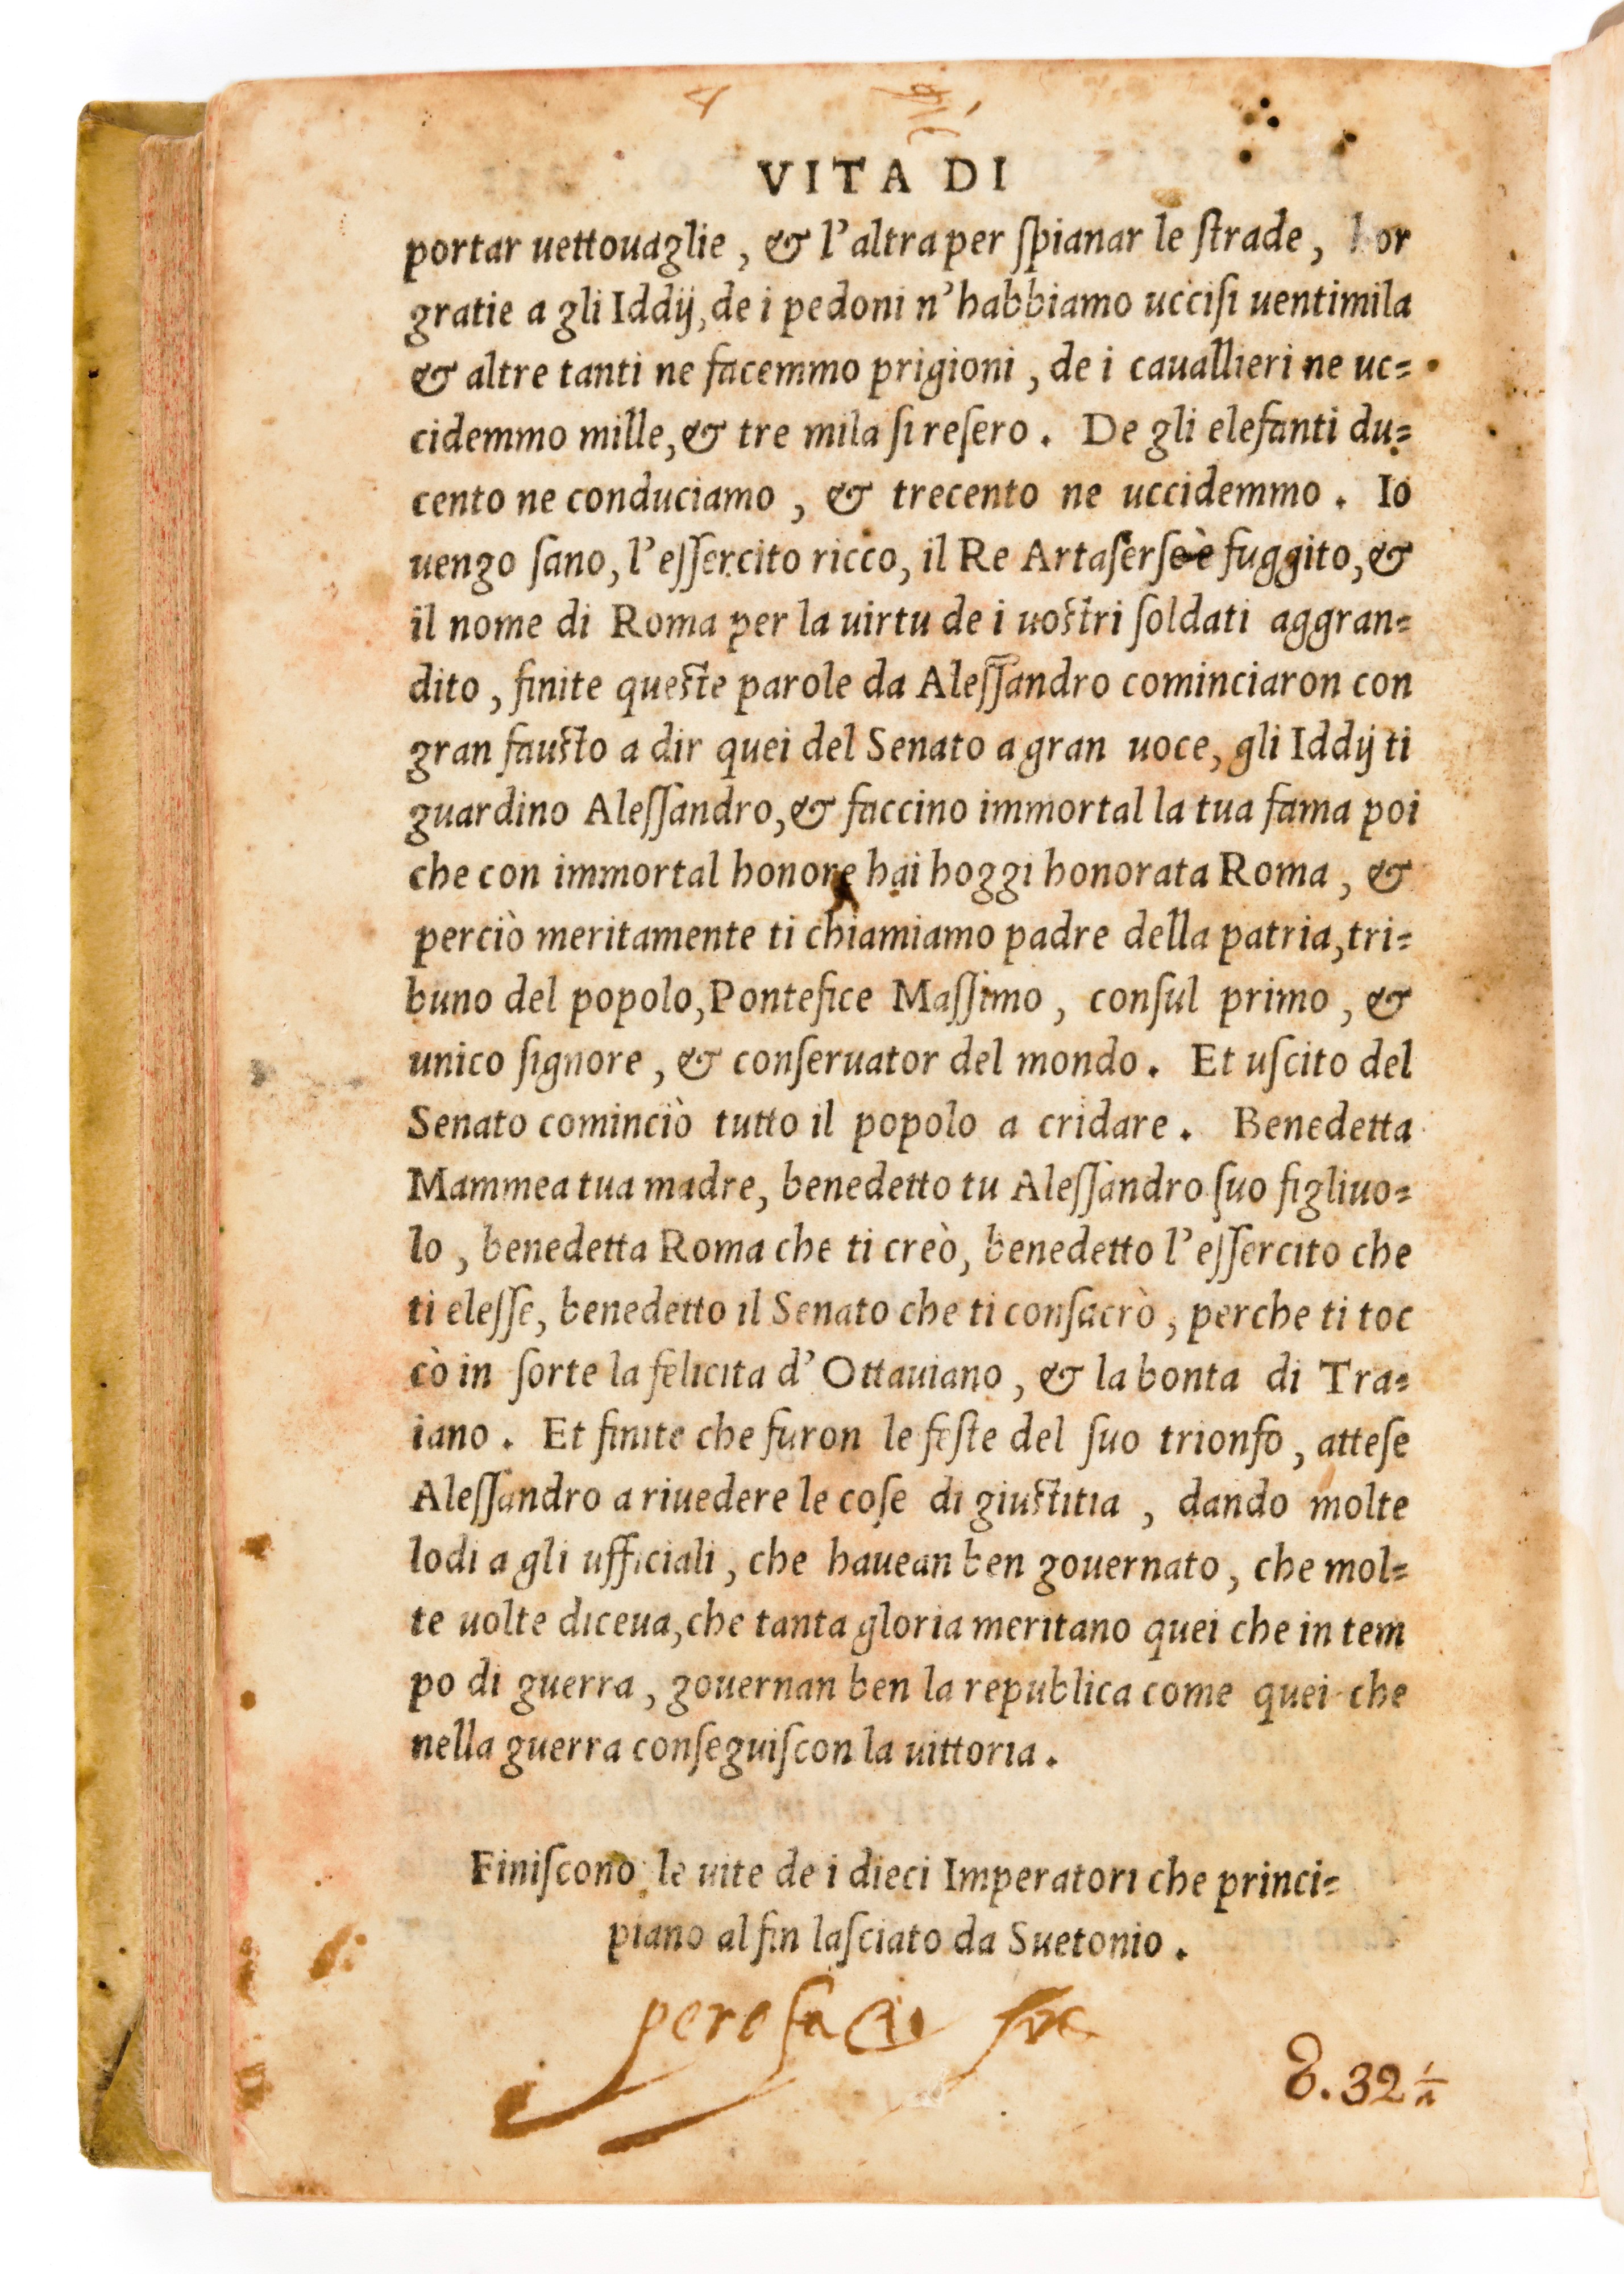 VITA DI
portar uettouaglie, & l'altra per ſpianar le ſtrade, hor
gratie a gli Iddij, de i pedoni n'habbiamo ucciſi uentimila
& altre tanti ne facemmo prigioni, de i cauallieri ne uc=
cidemmo mille, & tre mila ſi reſero. De gli elefanti du=
cento ne conduciamo, & trecento ne uccidemmo. Io
uengo ſano, l'eſſercito ricco, il Re Artaſerſe è fuggito, &
il nome di Roma per la uirtu de i uoſtri ſoldati aggran=
dito, finite queſte parole da Aleſſandro cominciaron con
gran fauſto a dir quei del Senato a gran uoce, gli Iddij ti
guardino Aleſſandro, & faccino immortal la tua fama poi
che con immortal honore hai hoggi honorata Roma, &
perciò meritamente ti chiamiamo padre della patria, tri=
buno del popolo, Pontefice Maſſimo, conſul primo, &
unico ſignore, & conſeruator del mondo. Et uſcito del
Senato cominciò tutto il popolo a cridare. Benedetta
Mammea tua madre, benedetto tu Aleſſandro ſuo figliuo=
lo, benedetta Roma che ti creò, benedetto l'eſſercito che
ti eleſſe, benedetto il Senato che ti conſacrò, perche ti toc
cò in ſorte la felicita d'Ottauiano, & la bonta di Tra=
iano. Et finite che furon le feſte del ſuo trionfo, atteſe
Aleſſandro a riuedere le coſe di giuſtitia, dando molte
lodi a gli ufficiali, che hauean ben gouernato, che mol=
te uolte diceua, che tanta gloria meritano quei che in tem
po di guerra, gouernan ben la republica come quei che
nella guerra conſeguiſcon la uittoria.
Finiſcono le uite de i dieci Imperatori che princi=
piano al fin laſciato da Suetonio.